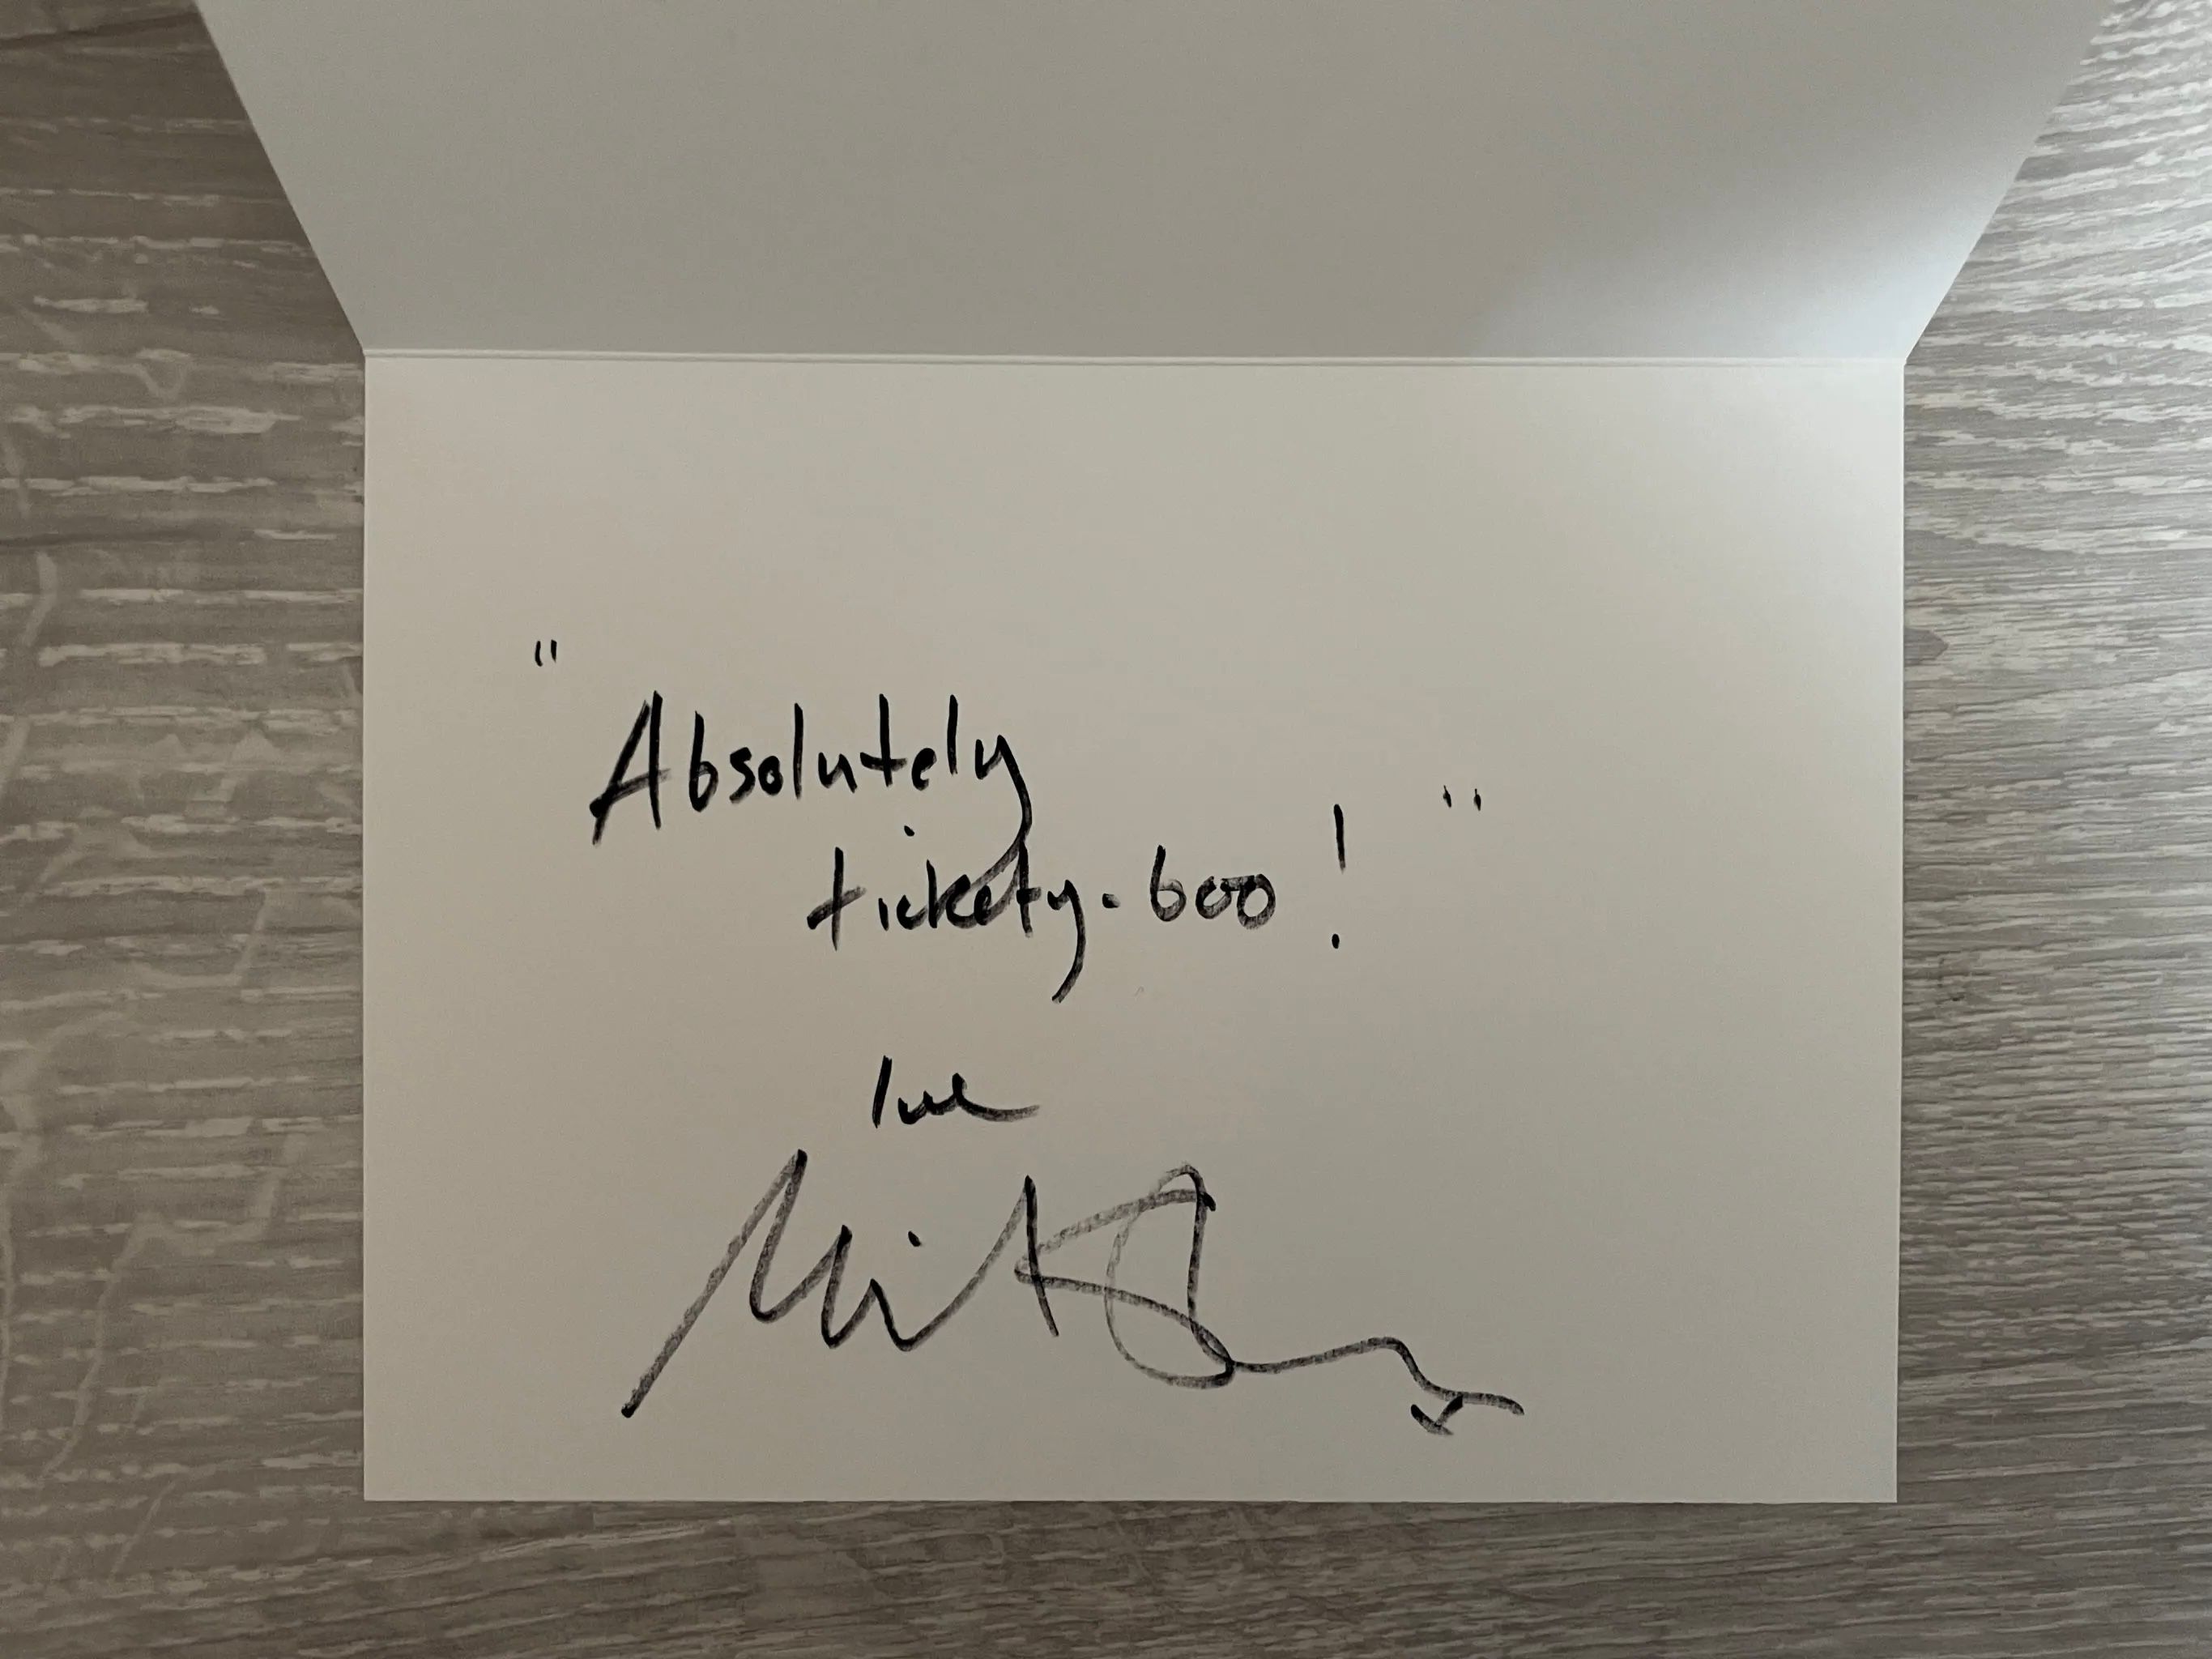 "Absolutely
tickety-boo!"
love